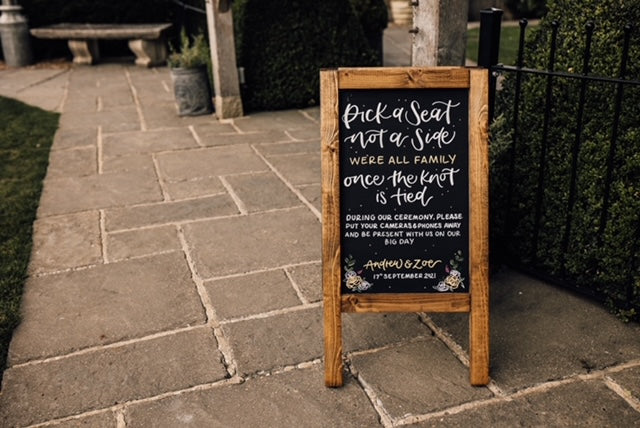 Pick a Seat
not a Side
WE'RE ALL FAMILY
once the knot
is tied
DURING OUR CEREMONY, PLEASE
PUT YOUR CAMERAS & PHONES AWAY
AND BE PRESENT WITH US ON OUR
BIG DAY
Andrew & Zoe
17TH SEPTEMBER 2121